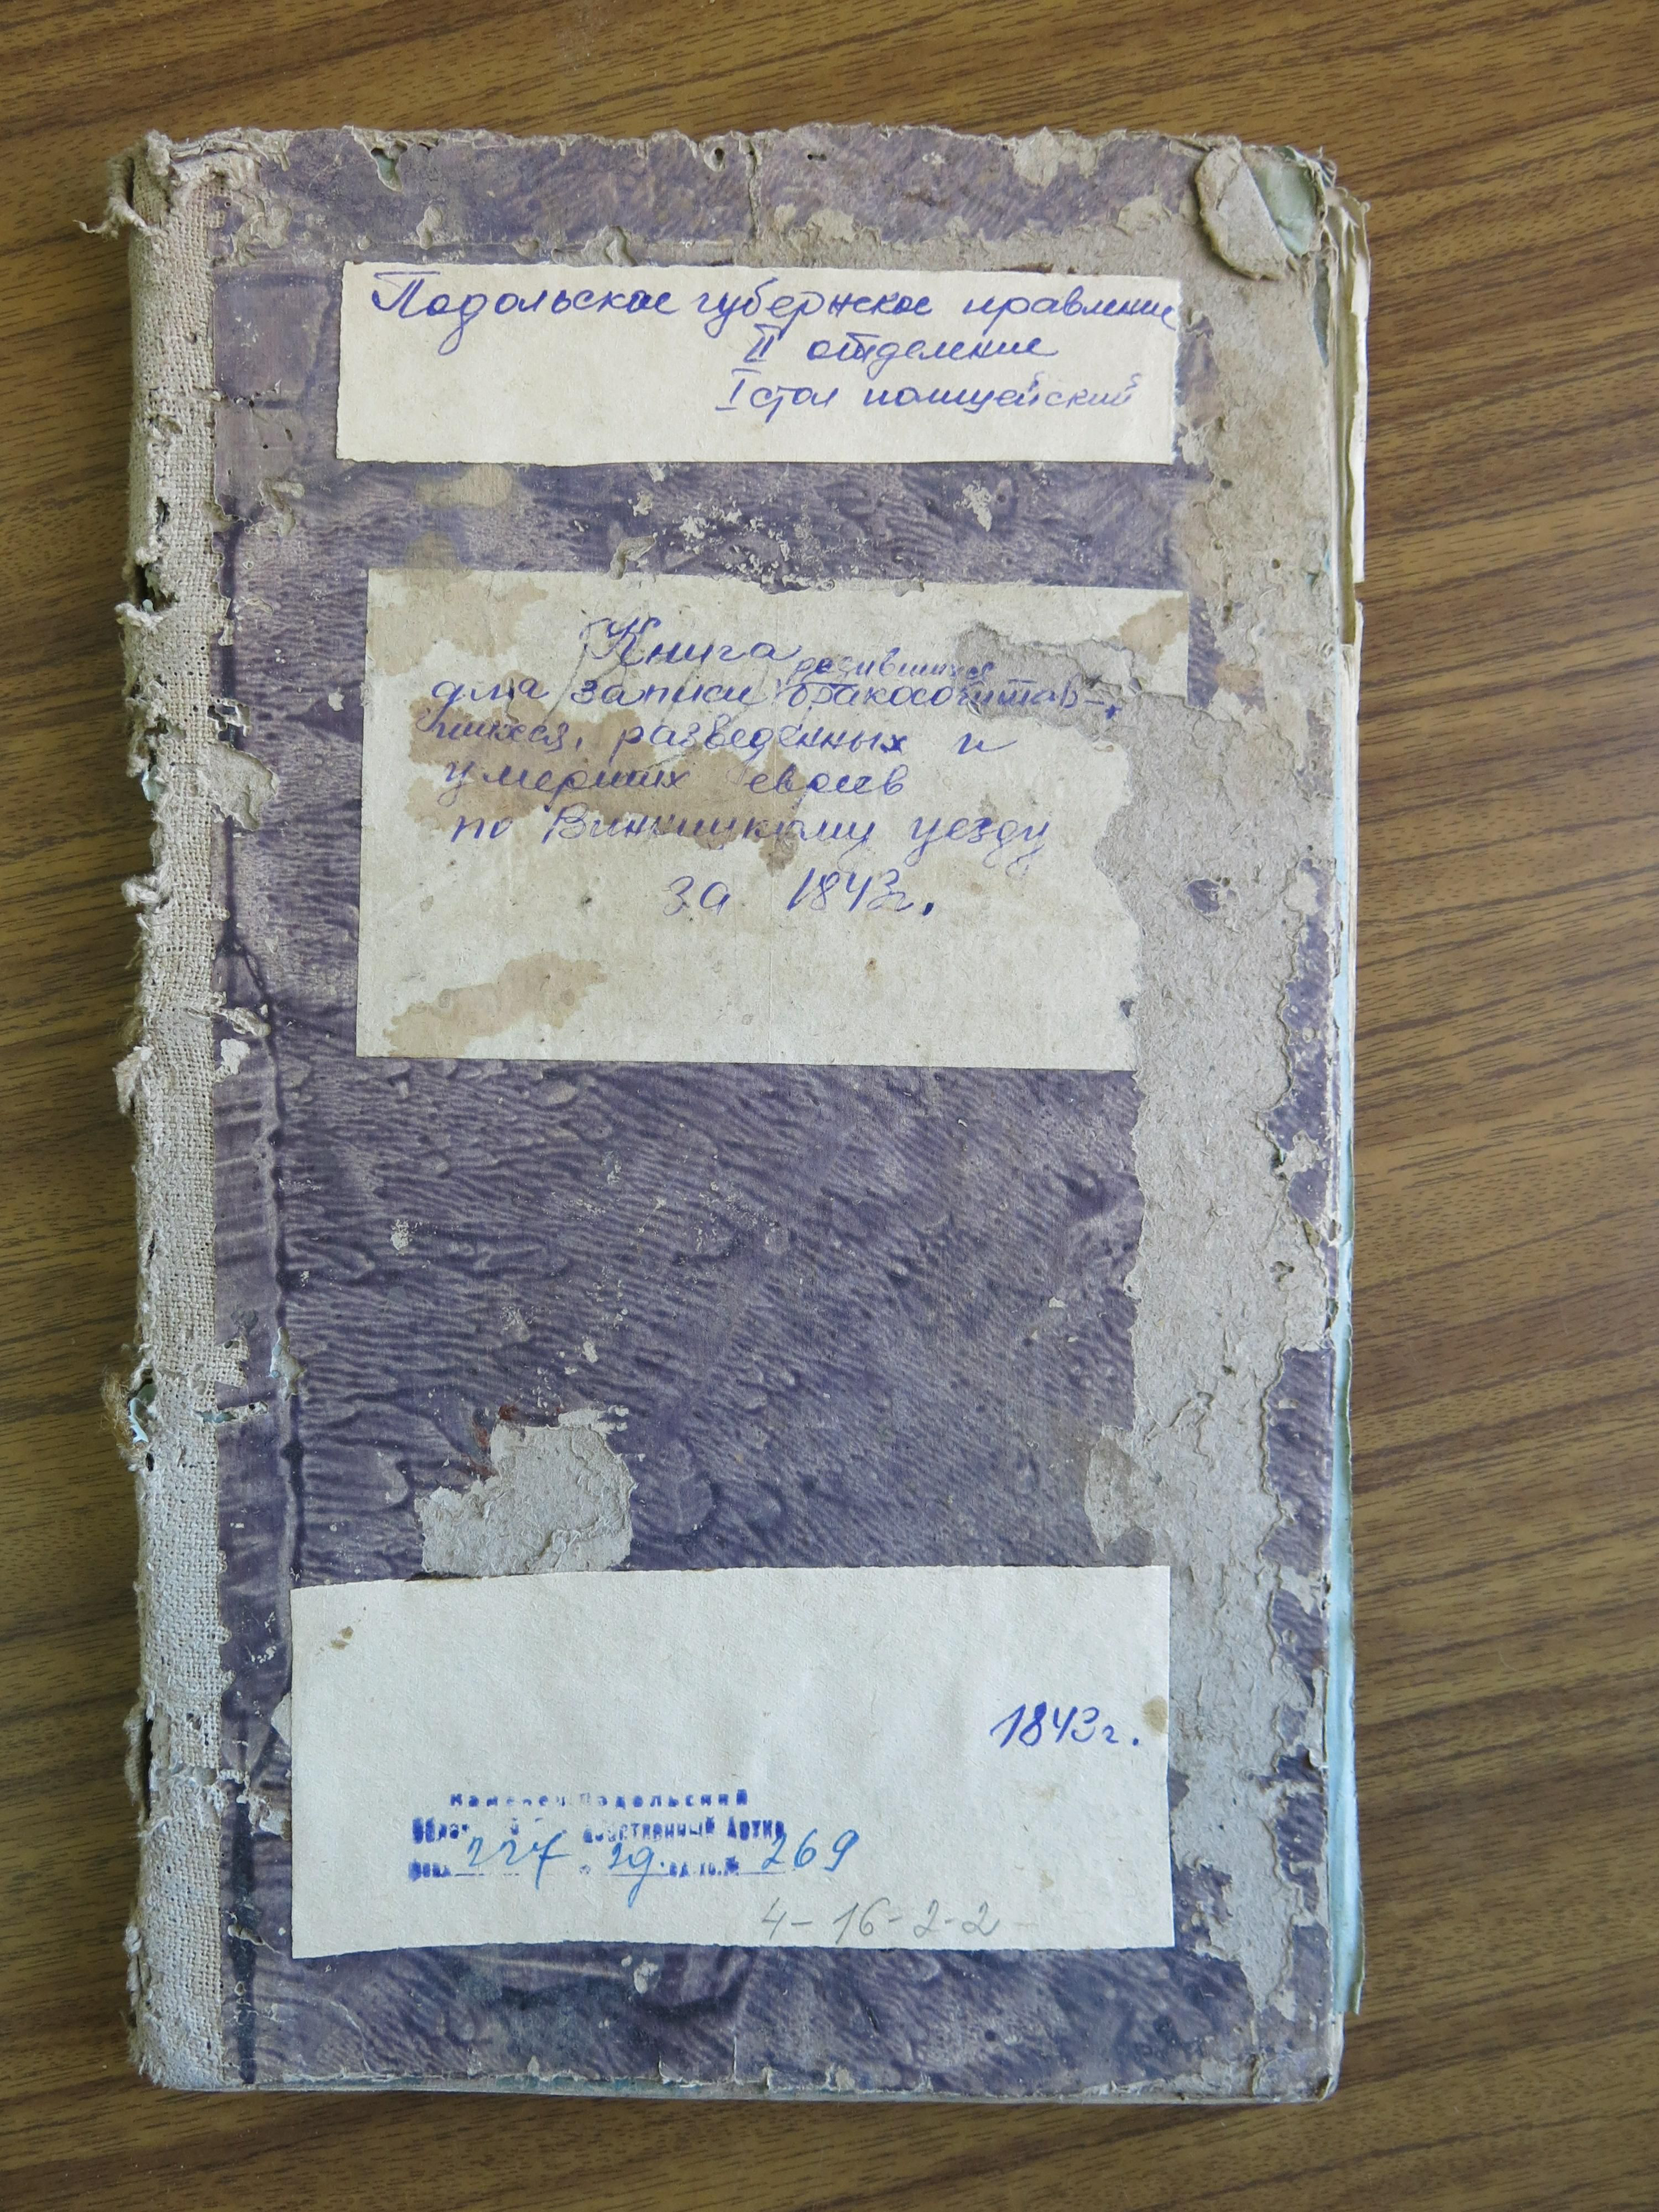 Подольское губернское правление
II отделение
I стол полицейский
Книга
родившихся
для записи бракосочитав-
шихся, разведенных и
умерших евреев
по Винницкому уезду
за 1843г.
1843г.
Каменец-Подольский
Архив
227 29. ед. хр. № 269
4-16-2-2